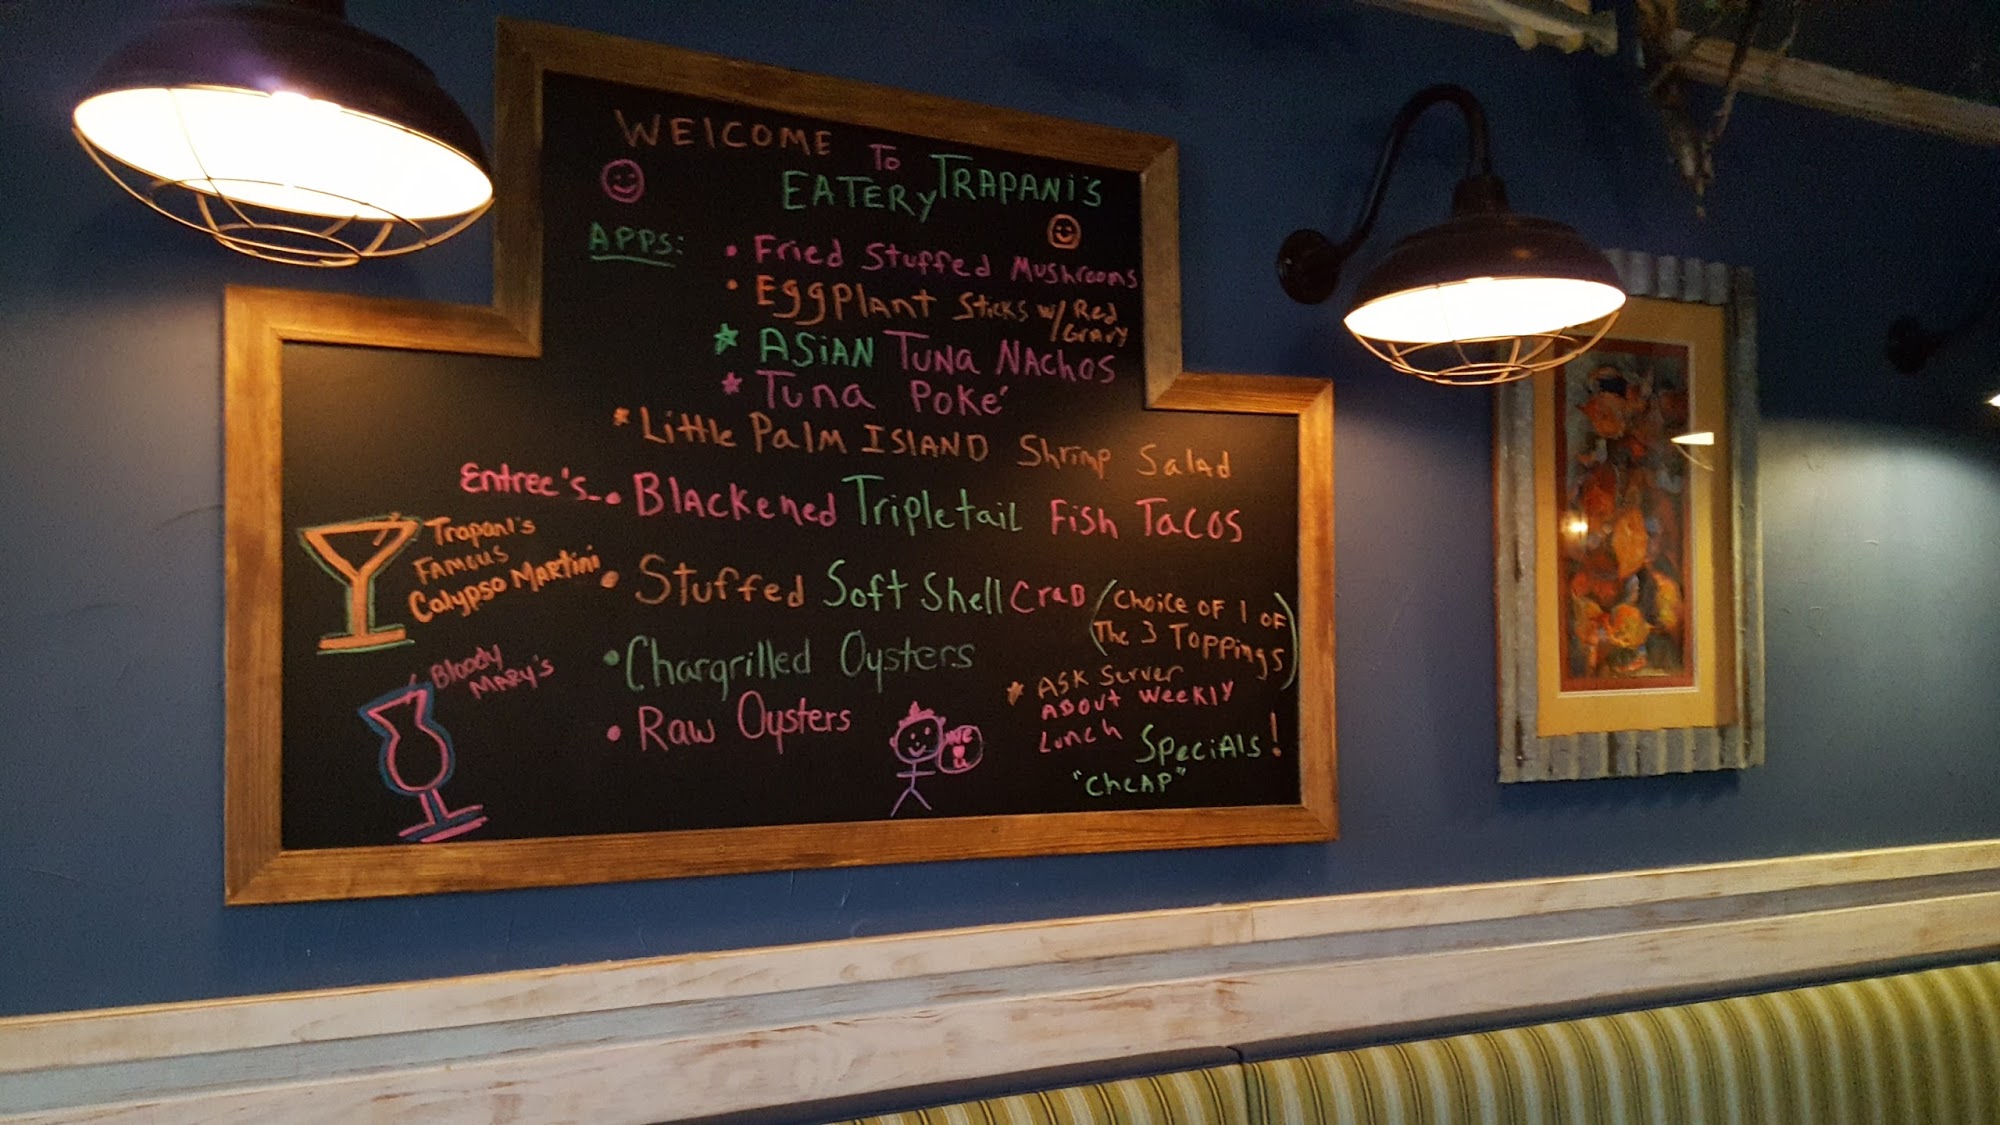 WELCOME TO TRAPANI'S
EATERY
APPS:
• Fried Stuffed Mushrooms
• Eggplant Sticks w/ Red
Gravy
* ASIAN TUNA NACHOS
* Tuna Poké
* Little Palm ISLAND Shrimp Salad
Entree's--• Blackened Tripletail Fish Tacos
Trapani's
Famous
Calypso Martini
• Stuffed Soft Shell Crab (Choice of 1 of
The 3 Toppings)
Bloody
Mary's
• Chargrilled Oysters
• Raw Oysters
* Ask Server
About Weekly
Lunch Specials!
"Cheap"
We
♥
U